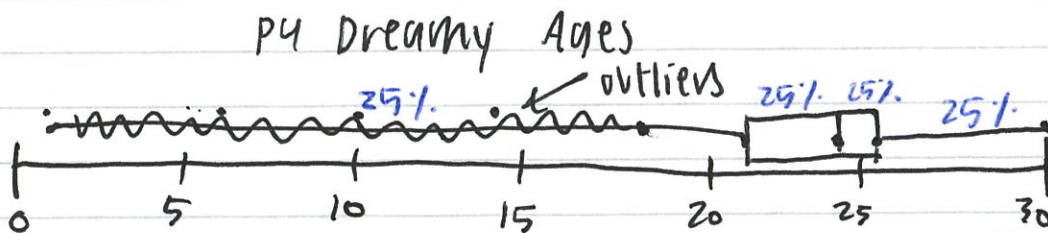 P4 Dreamy Ages
outliers
25%. 25%. 25%. 25%.
0 5 10 15 20 25 30